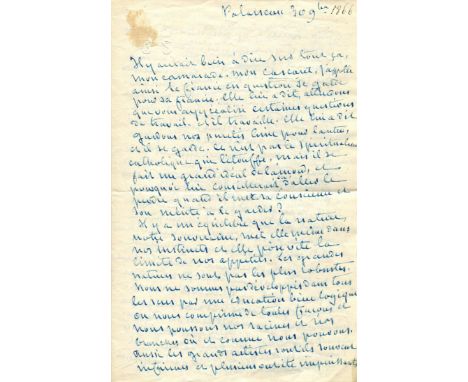 Palaiseau 30 9bre 1866
Il y aurait bien à dire sur tout ça,
mon camarade. mon Cascaret, j'appelle
ainsi le fiancé en question se garde
pour sa fiancée. Elle lui a dit, attendons
que vous ayez réalisé certaines questions
de travail, et il travaille. Elle lui a dit
gardons nos puretés l'une pour l'autre,
et il se garde. Ce n'est pas le spiritualisme
catholique qui l'étouffe, mais il se
fait un grand idéal de l'amour, et
pourquoi lui conseillerait-on d'aller le
perdre quand il met sa conscience et
son mérite à le garder?
Il y a un équilibre que la nature,
notre souveraine, met elle même dans
nos instincts et elle pose vite la
limite de nos appétits. Les grandes
natures ne sont pas les plus robustes.
Nous ne sommes pas développés dans tous
les sens par une éducation bien logique.
On nous comprime de toutes façons et
nous poussons nos racines et nos
branches où et comme nous pouvons.
Aussi les grands artistes sont ils souvent
infirmes et plusieurs ont été impuissants